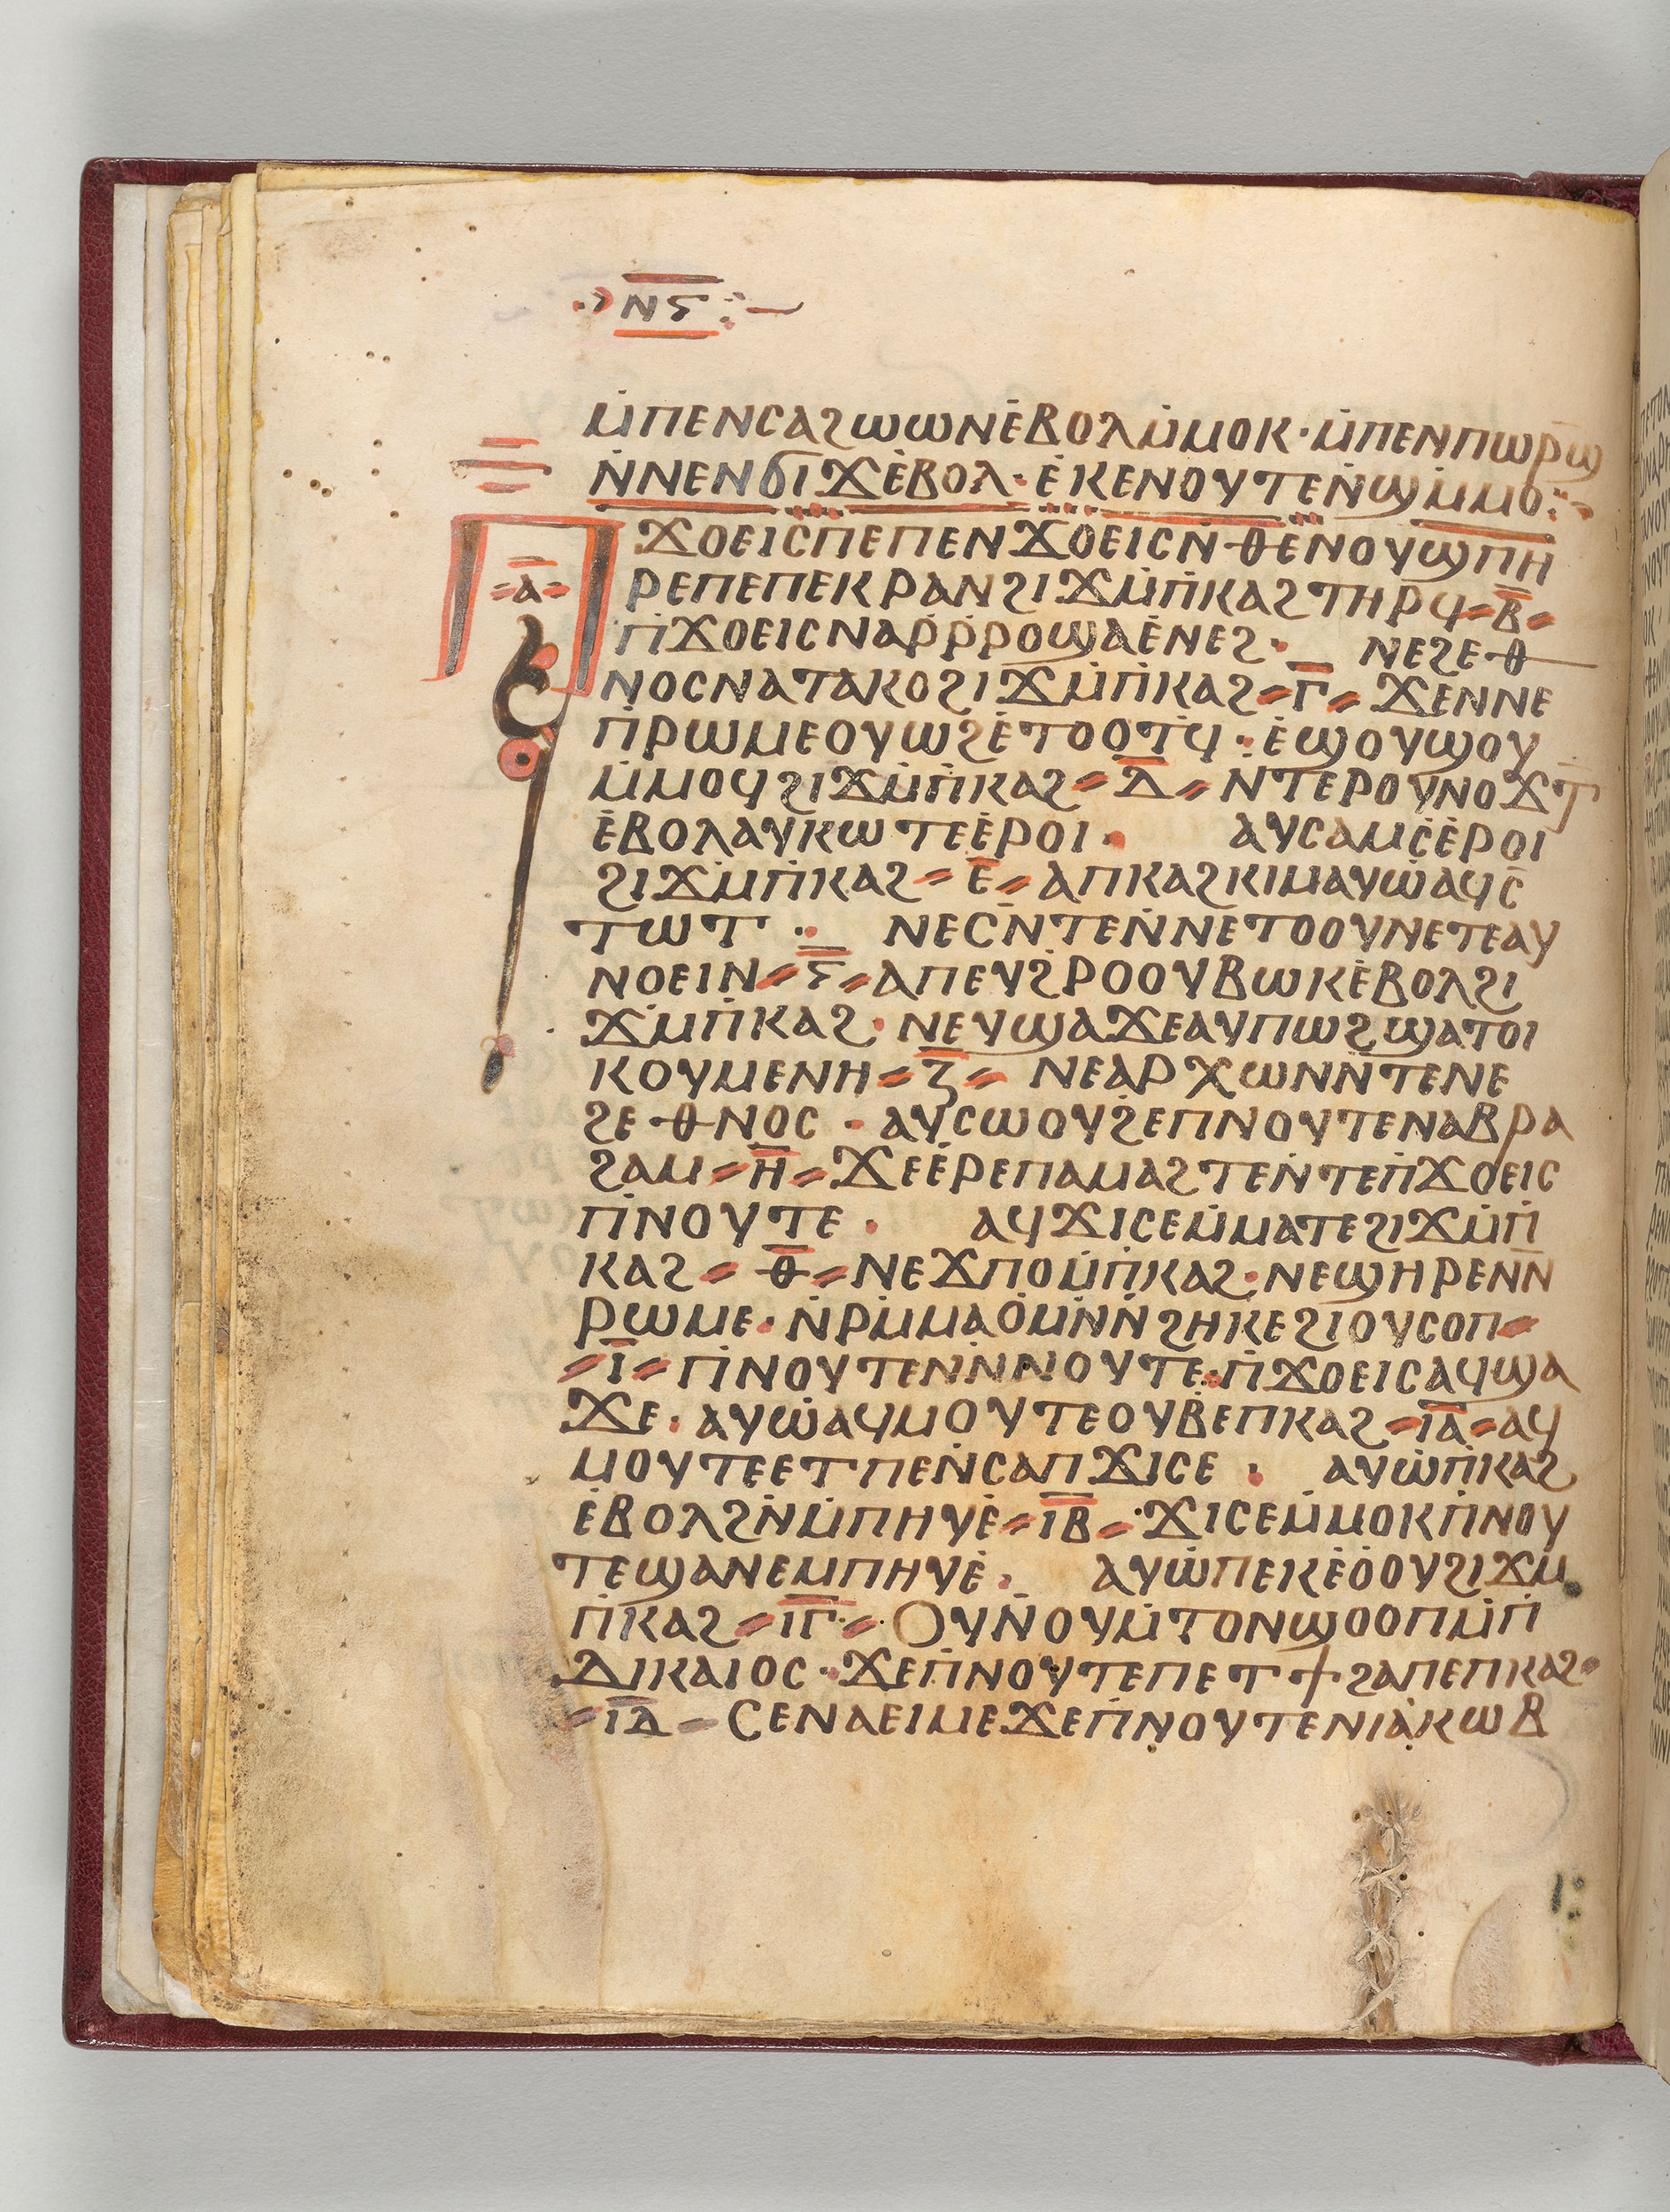 ⲛⲋ
ⲙ̇ⲡⲉⲛⲥⲁϩⲱⲱⲛⲉ̇ⲃⲟⲗⲙ̇ⲙⲟⲕ · ⲙ̇ⲡⲉⲛⲡⲱⲣϣ
ⲛ̇ⲛⲉⲛϭⲓϫⲉ̇ⲃⲟⲗ · ⲉ̇ⲕⲉⲛⲟⲩⲧⲉⲛ̇ϣⲙ̇ⲙⲟ :-
ⲡ̅ -ⲁ̅- ϫⲟⲉⲓⲥⲡⲉⲡⲉⲛϫⲟⲉⲓⲥⲛ̇ⲑⲉⲛⲟⲩϣⲡⲏ
ⲣⲉⲡⲉⲡⲉⲕⲣⲁⲛϩⲓϫⲙ̇ⲡ̇ⲕⲁϩⲧⲏⲣϥ -ⲃ̅-
ⲡ̇ϫⲟⲉⲓⲥⲛⲁⲣ̇ⲣ̇ⲣⲟϣⲁⲉ̇ⲛⲉϩ · ⲛⲉϩⲉⲑ
ⲛⲟⲥⲛⲁⲧⲁⲕⲟϩⲓϫⲙ̇ⲡ̇ⲕⲁϩ -ⲅ̅- ϫⲉⲛⲛⲉ
ⲡ̇ⲣⲱⲙⲉⲟⲩⲱϩⲉ̇ⲧⲟⲟⲧϥ̇ · ⲉ̇ϣⲟⲩϣⲟⲩ
ⲙ̇ⲙⲟϥϩⲓϫⲙ̇ⲡ̇ⲕⲁϩ -ⲇ̅- ⲛⲧⲉⲣⲟⲩⲛⲟϫⲧ̅
ⲉ̇ⲃⲟⲗⲁⲩⲕⲱⲧⲉⲉ̇ⲣⲟⲓ · ⲁⲩⲥⲁⲙⲥ̇ⲉ̇ⲣⲟⲓ
ϩⲓϫⲙ̇ⲡ̇ⲕⲁϩ -ⲉ̅- ⲁⲡⲕⲁϩⲕⲓⲙⲁⲩⲱ̇ⲁϥⲥ̇
ⲧⲱⲧ · ⲛⲉⲥⲛ̇ⲧⲉⲛ̇ⲛⲉⲧⲟⲟⲩⲛⲉⲧⲉⲁⲩ
ⲛⲟⲉⲓⲛ -ⲋ̅- ⲁⲡⲉⲩϩ̇ⲣⲟⲟⲩⲃⲱⲕⲉ̇ⲃⲟⲗϩⲓ
ϫⲙ̇ⲡ̇ⲕⲁϩ · ⲛⲉⲩϣⲁϫⲉⲁⲩⲡⲱϩϣⲁⲧⲟⲓ
ⲕⲟⲩⲙⲉⲛⲏ -ⲍ̅- ⲛⲉⲁⲣⲭⲱⲛⲛ̇ⲧⲉⲛⲉ
ϩⲉⲑⲛⲟⲥ · ⲁⲩⲥⲱⲟⲩϩ̇ⲉⲡⲛⲟⲩⲧⲉⲛⲁⲃⲣⲁ
ϩⲁⲙ -ⲏ̅- ϫⲉⲉ̇ⲣⲉⲡⲁⲙⲁϩⲧⲉⲛ̇ⲧⲉⲡ̇ϫⲟⲉⲓⲥ
ⲡ̇ⲛⲟⲩⲧⲉ · ⲁϥϫⲓⲥⲉⲙ̇ⲙⲁⲧⲉϩⲓϫⲙ̇ⲡ̇
ⲕⲁϩ -ⲑ̅- ⲛⲉϫⲡⲟⲙ̇ⲡ̇ⲕⲁϩ · ⲛⲉϣⲏⲣⲉⲛ̅ⲛ̅
ⲣⲱⲙⲉ · ⲛ̇ⲣⲙ̇ⲙⲁⲟ̇ⲙⲛ̇ⲛ̇ϩⲏⲕⲉϩⲓⲟⲩⲥⲟⲡ-
-ⲓ̅- ⲡ̇ⲛⲟⲩⲧⲉⲛ̇ⲛ̇ⲛⲟⲩⲧⲉ · ⲡ̇ϫⲟⲉⲓⲥⲁϥϣⲁ
ϫⲉ · ⲁⲩⲱ̇ⲁϥⲙⲟⲩⲧⲉⲟⲩⲃ̇ⲉⲡⲕⲁϩ -ⲓ̅ⲁ̅- ⲁϥ
ⲙⲟⲩⲧⲉⲉⲧⲡⲉⲛ̇ⲥⲁⲡϫⲓⲥⲉ · ⲁⲩⲱ̇ⲡ̇ⲕⲁϩ
ⲉ̇ⲃⲟⲗϩⲛ̇ⲙ̇ⲡⲏⲩⲉ̇ -ⲓ̅ⲃ̅- ϫⲓⲥⲉⲙ̇ⲙⲟⲕⲡ̇ⲛⲟⲩ
ⲧⲉϣⲁⲛⲉⲙⲡⲏⲩⲉ̇ · ⲁⲩⲱ̇ⲡⲉⲕⲉ̇ⲟ̇ⲟⲩϩⲓϫⲙ̇
ⲡ̇ⲕⲁϩ -ⲓ̅ⲅ̅- ⲟⲩⲛ̇ⲟⲩⲙ̇ⲧⲟⲛϣⲟⲟⲡⲙ̇ⲡ̇
ⲇⲓⲕⲁⲓⲟⲥ · ϫⲉⲡ̇ⲛⲟⲩⲧⲉⲡⲉⲧϯϩⲁⲡⲉⲡⲕⲁϩ ·
-ⲓ̅ⲇ̅- ⲥⲉⲛⲁⲉⲓⲙⲉϫⲉⲡ̇ⲛⲟⲩⲧⲉⲛⲓⲁ̇ⲕⲱⲃ